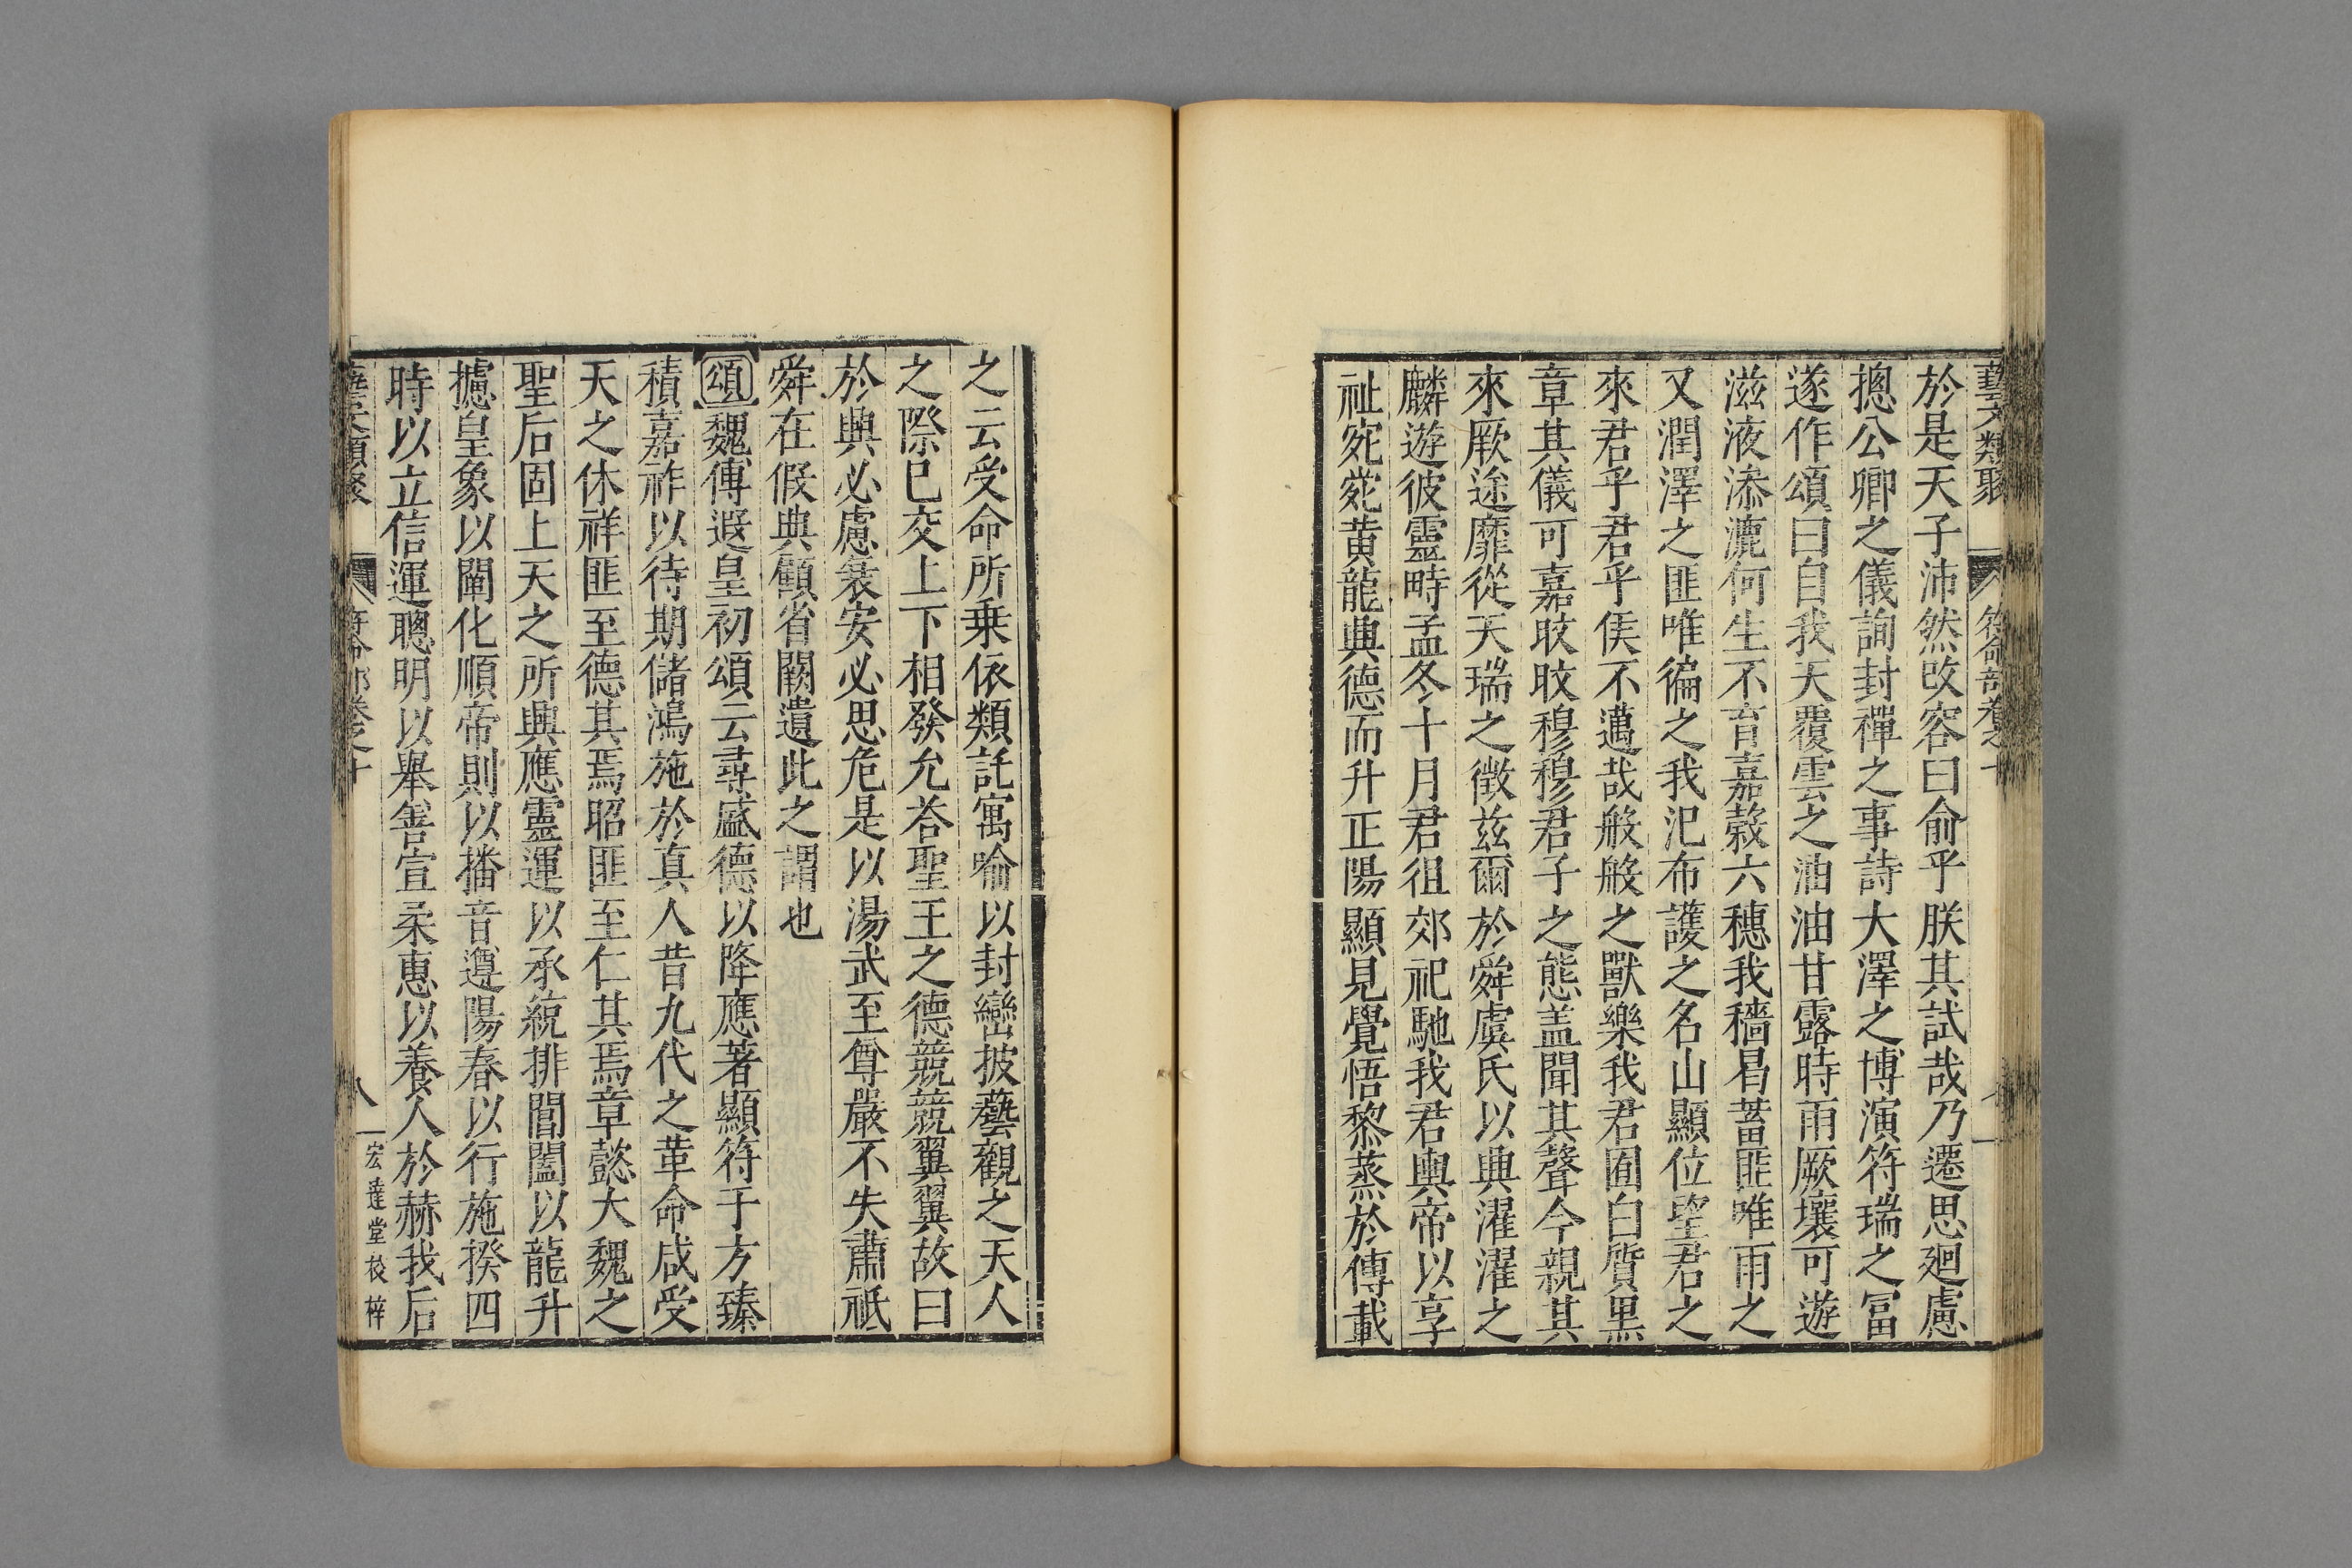 藝文類聚 符命部卷之十 七
於是天子沛然改容曰俞乎朕其試哉乃遷思廻慮
摠公卿之儀詢封禪之事詩大澤之博演符瑞之冨
遂作頌曰自我天覆雲之油油甘露時雨厥壤可遊
滋液滲漉何生不育嘉榖六穗我穡曷蓄匪唯雨之
又潤澤之匪唯徧之我汜布護之名山顯位望君之
來君乎君乎侯不邁哉般般之獸樂我君囿白質黒
章其儀可嘉旼旼穆穆君子之態盖聞其聲今親其
來厥途靡從天瑞之徴兹爾於舜虞氏以興濯濯之
麟遊彼靈畤孟冬十月君徂郊祀馳我君輿帝以享
祉宛宛黄龍興德而升正陽顯見覺悟黎蒸於傳載
之云受命所乗依類託寓喻以封巒披藝觀之天人
之際已交上下相發允荅聖王之德兢兢翼翼故曰
於興必慮衰安必思危是以湯武至尊嚴不失肅祗
舜在假典顧省闕遺此之謂也
頌魏傅遐皇初頌云尋盛德以降應著顯符于方臻
積嘉祚以待期儲鴻施於真人昔九代之革命咸受
天之休祥匪至德其焉昭匪至仁其焉章懿大魏之
聖后固上天之所興應靈運以承統排閶闔以龍升
攄皇象以闡化順帝則以播音遵陽春以行施揆四
時以立信運聰明以舉善宣柔惠以養人於赫我后
藝文類聚 符命部卷之十 八 宏達堂校梓